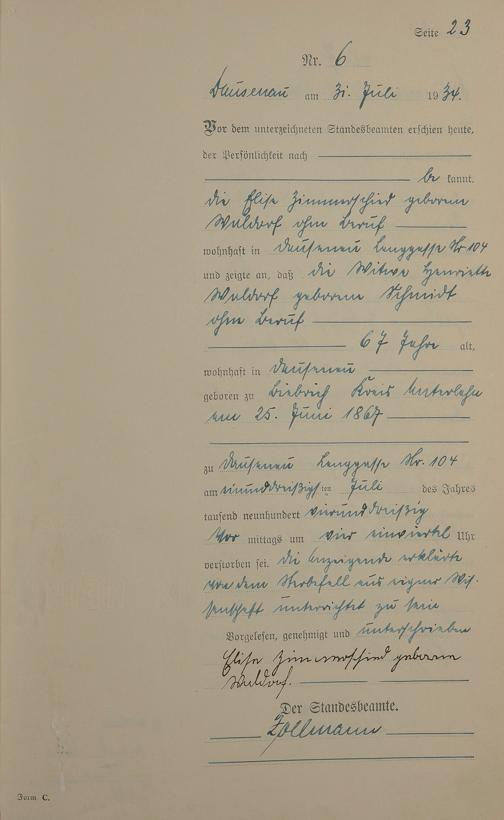 Seite 23
Nr. 6
Dausenau am 31. Juli 1934.
Vor dem unterzeichneten Standesbeamten erschien heute,
der Persönlichkeit nach
be kannt,
die Elise Zimmerschied geborene
Waldorf ohne Beruf
wohnhaft in Dausenau Langgasse Nr 104
und zeigte an, daß die Witwe Henriette
Waldorf geborene Schmidt
ohne Beruf
67 Jahre alt,
wohnhaft in Dausenau
geboren zu Biebrich Kreis Unterlahn
am 25. Juni 1867
zu Dausenau Langgasse Nr. 104
am einunddreißigsten Juli des Jahres
tausend neunhundert vierunddreißig
Vor mittags um vier einviertel Uhr
verstorben sei. Die Anzeigende erklärte
von dem Sterbefall aus eigner Wis-
senschaft unterrichtet zu sein
Vorgelesen, genehmigt und unterschrieben
Elise Zimmerschied geborene
Waldorf.
Der Standesbeamte.
Zollmann
Form C.